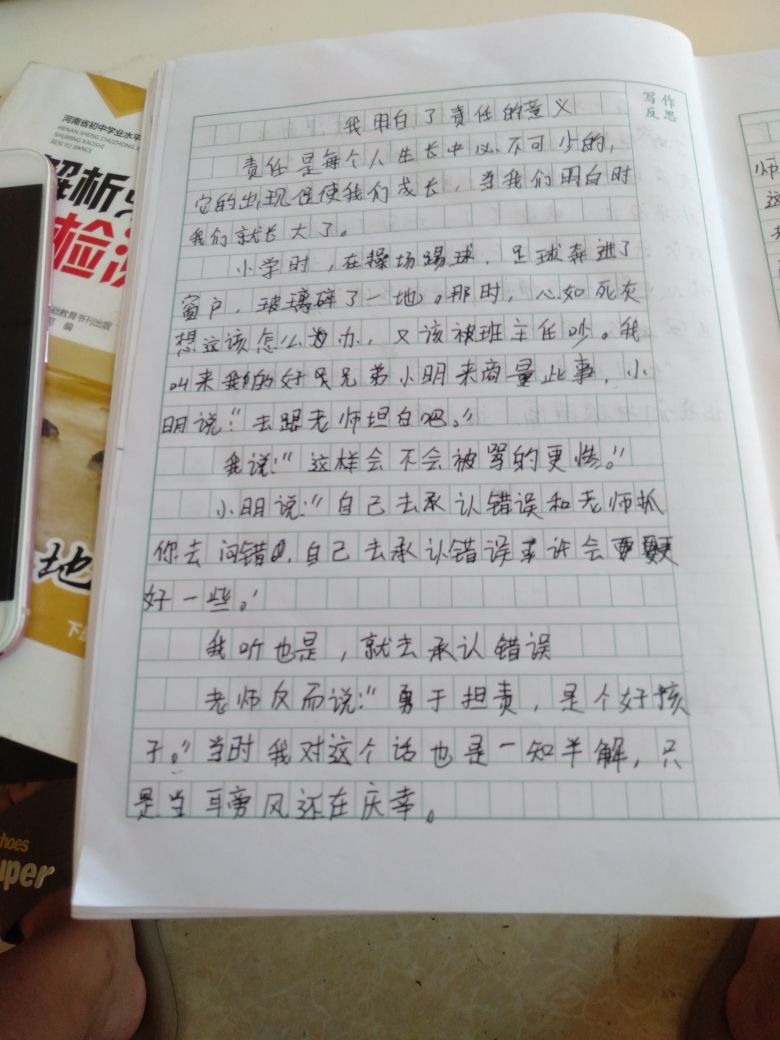 写作
反思
我明白了责任的意义
责任是每个人生长中必不可少的,
它的出现促使我们成长,当我们明白时
我们就长大了。
小学时,在操场踢球,足球奔进了
窗户,玻璃碎了一地。那时,心如死灰
想这该怎么办,又该被班主任吵。我
叫来我的好兄弟小明来商量此事,小
明说:“去跟老师坦白吧。”
我说:“这样会不会被骂的更惨。”
小明说:“自己去承认错误和老师抓
你去问错,自己去承认错误或许会更
好一些。”
我听也是,就去承认错误
老师反而说:“勇于担责,是个好孩
子。”当时我对这个话也是一知半解,只
是当耳旁风还在庆幸。
河南省初中学业水平
HENAN SHENG CHUZHONG
SHUIPING KAOSHI
JIEXI YU JIANCE
解析
检测
基础教育书刊出版
编
地
下
师
这
hoes
uper